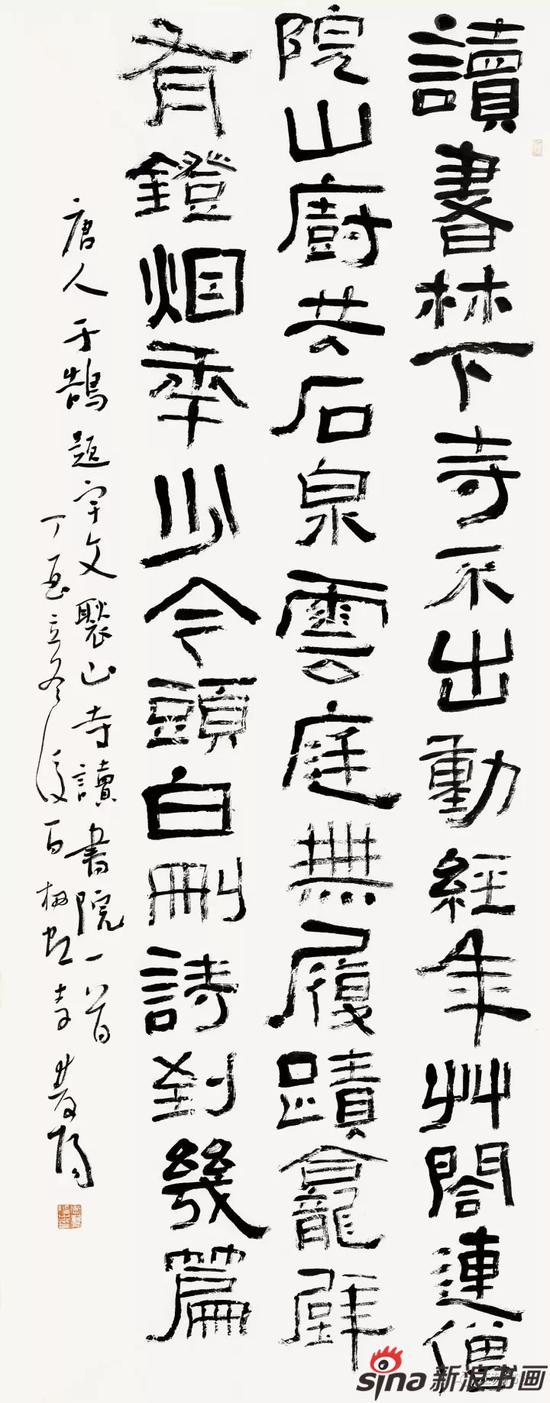 讀書林下寺不出動經年艸閤連僧
院山廚共石泉雲庭無履蹟龕壁
有鐙烟年少今頭白刪詩到幾篇
唐人于鵠題宇文褧山寺讀書院一首
丁酉立冬後百
sina 新浪书画